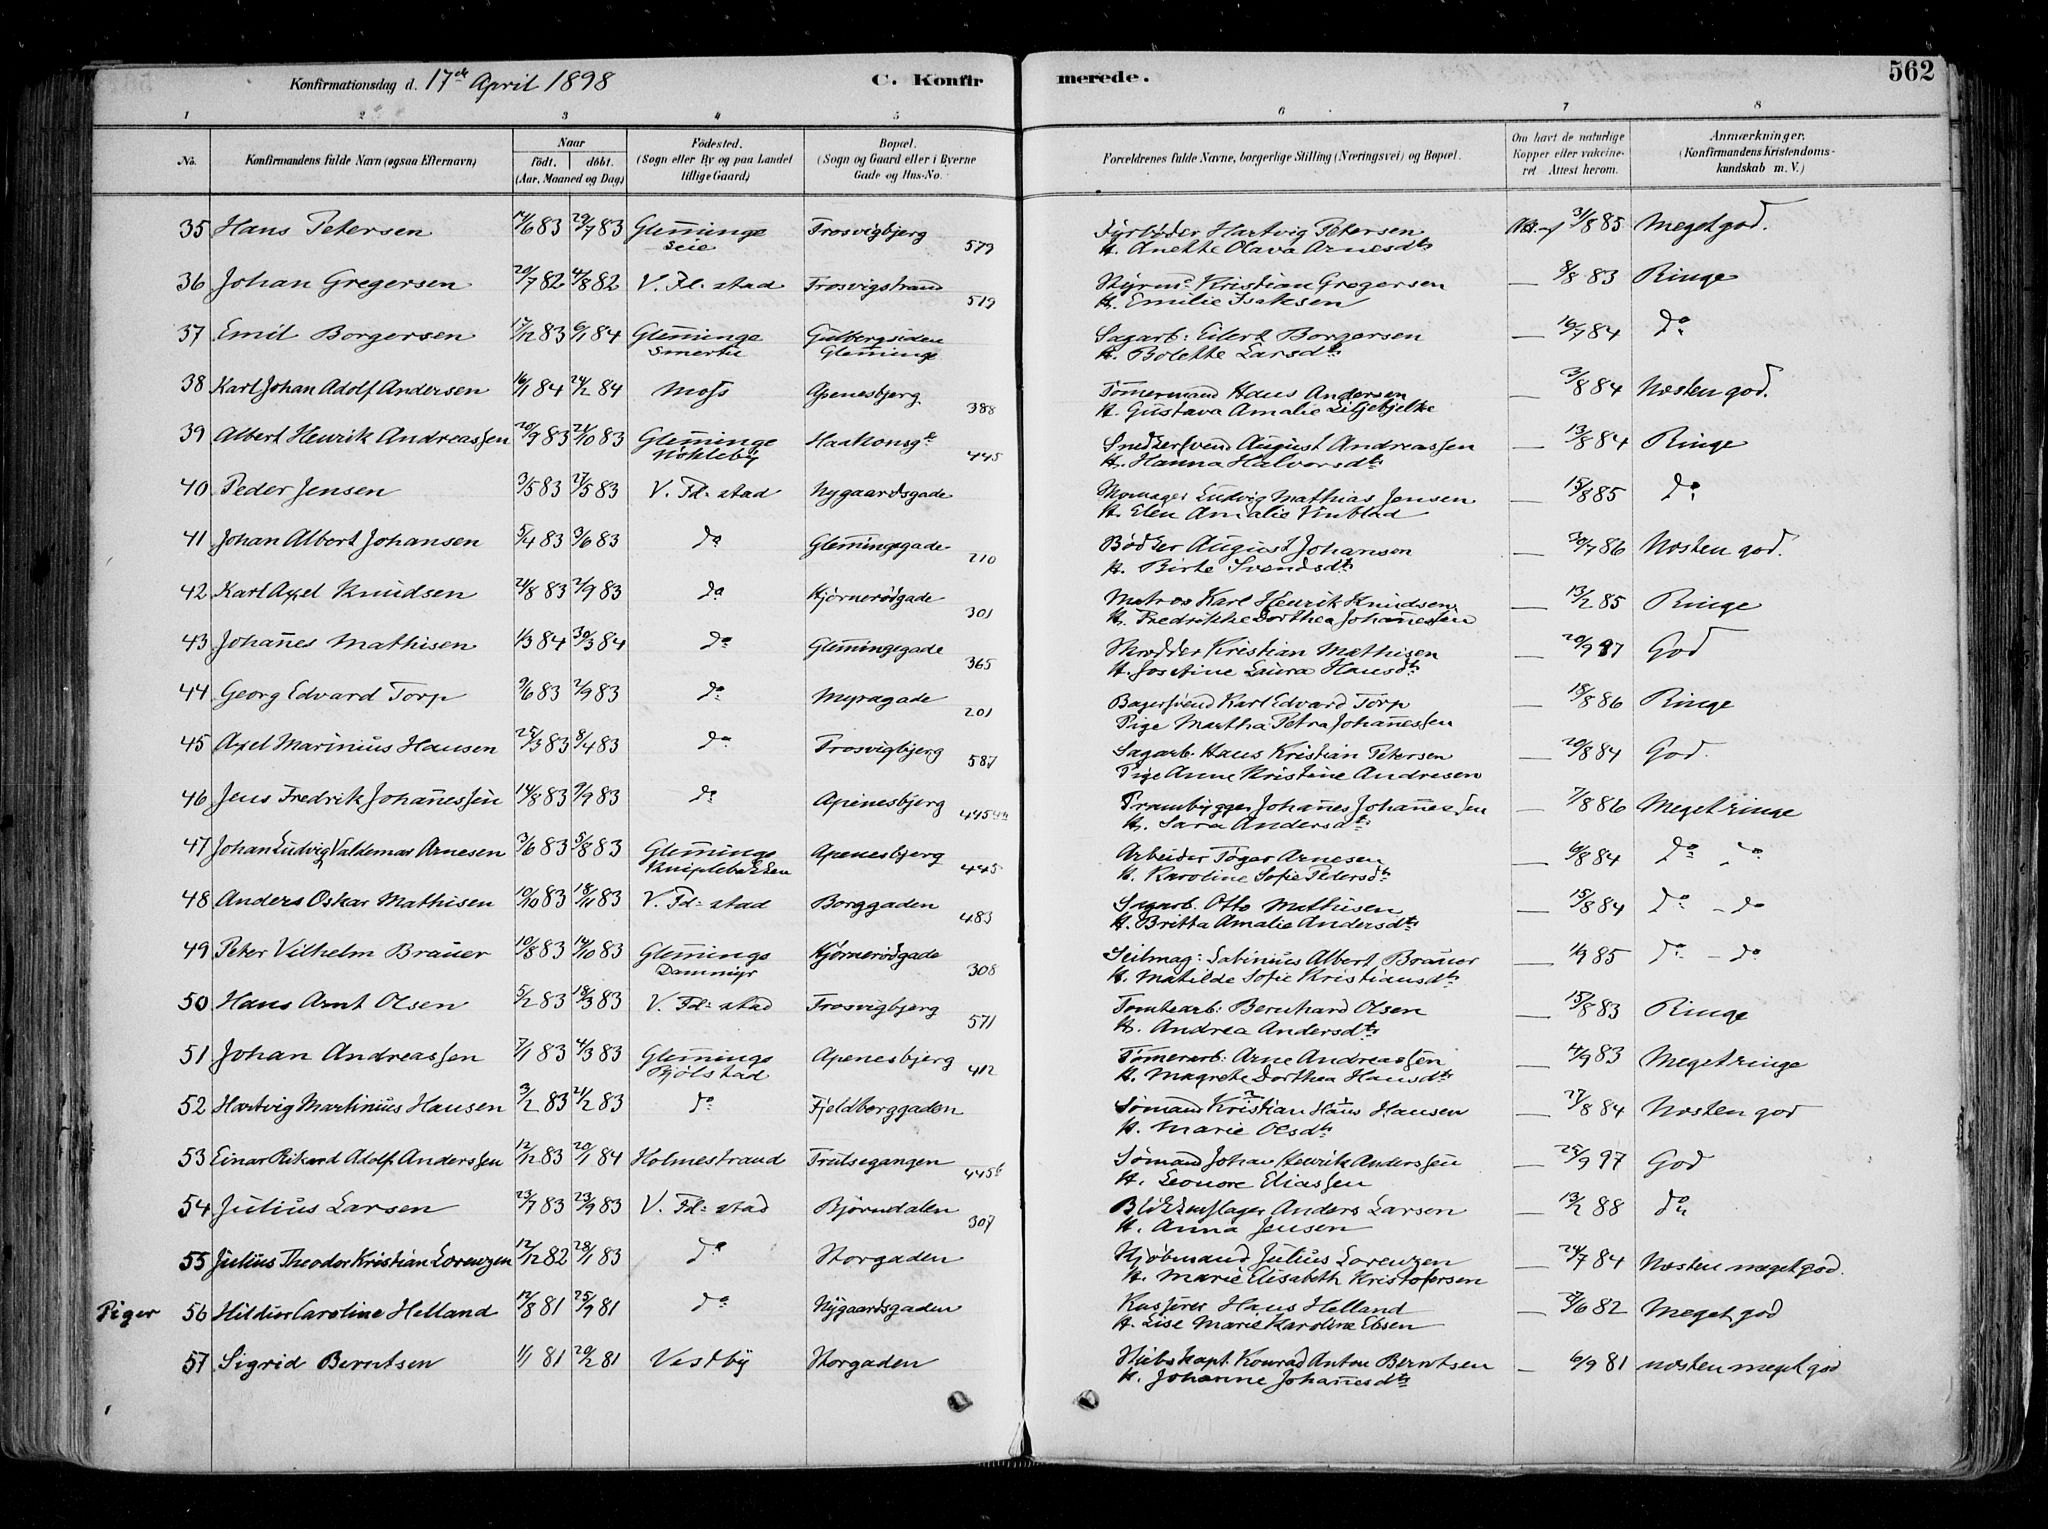 Konfirmationsdag d. 17de April 1898
C. Konfirmerede.
562
1 2 3 4 5 6 7 8
No. Konfirmandens fulde Navn (ogsaa Efternavn) Naar født. døbt. (Aar, Maaned og Dag) Fødested. (Sogn eller By og paa Landet tillige Gaard) Bopæl. (Sogn og Gaard eller i Byerne Gade og Hus-No. Forældrenes fulde Navne, borgerlige Stilling (Næringsvei) og Bopæl. Om havt de naturlige Kopper eller vakcineret. Attest herom. Anmærkninger. (Konfirmandens Kristendomskundskab m. V.)
35 Hans Petersen 14/6 83 29/7 83 Glemminge Seie Trosvigbjerg 579 Fyrbøder Hartvig Petersen 31/8 85 Meget god.
H. Anette Olava Arnesdtr
36 Johan Gregersen 20/7 82 4/8 82 V. Fd: stad Trosvigstrand 519 Styrmd Kristian Gregersen — 8/8 83 Ringe
H. Emilie Isaksen
37 Emil Borgersen 17/12 83 6/1 84 Glemminge Smertu Gulbergsiden Glemminge Sagarb: Eilert Borgersen — 16/7 84 do
H. Bolette Larsdtr
38 Karl Johan Adolf Andersen 16/1 84 24/2 84 Moss Apenesbjerg 388 Tømermand Hans Andersen — 3/8 84 Næsten god.
H. Gustava Amalie Liljebjelke
39 Albert Henrik Andreassen 20/9 83 21/10 83 Glemminge Nøkleby Haakonsge 445 Snedkersvend August Andreassen — 13/8 84 Ringe
H. Hanna Halvorsdtr
40 Peder Jensen 3/5 83 27/5 83 V. Fd: stad Nygaardsgade Skomager Ludvig Mathias Jensen — 15/8 85 do
H. Elen Amalie Vinblad
41 Johan Albert Johansen 5/4 83 3/6 83 do Glemmingegade 210 Bødker August Johansen — 30/7 86 Næsten god.
H. Birte Svendsdtr
42 Karl Axel Knudsen 21/8 83 2/9 83 do Hjørnerødgade 301 Matros Karl Henrik Knudsen — 13/2 85 Ringe
H. Fredrikke Dorthea Johanessen
43 Johanes Mathisen 1/3 84 30/3 84 do Glemmingegade 365 Skredder Kristian Mathisen — 20/9 97 God
H. Josefine Laura Hansdtr
44 Georg Edvard Torp 9/6 83 2/9 83 do Myragade 201 Bagersvend Karl Edvard Torp — 18/8 86 Ringe
Pige Martha Petra Johanessen
45 Axel Marinius Hansen 25/3 83 8/4 83 do Trosvigbjerg 587 Sagarb. Hans Kristian Petersen — 20/8 84 God.
Pige Anne Kristine Andresen
46 Jens Fredrik Johanessen 14/8 83 9/9 83 do Apenesbjerg Prambygger Johanes Johanessen — 7/8 86 Meget ringe
H. Sara Andersdtr
47 Johan Ludvig Valdemar Arnesen 3/6 83 5/8 83 Glemminge Kniplebakken Apenesbjerg 445 Arbeider Tøger Arnesen — 6/8 84 do do
H. Karoline Sofie Pedersdtr
48 Anders Oskar Mathisen 10/10 83 18/11 83 V. Fd: stad Borggaden 483 Sagarb. Otto Mathisen — 15/8 84 do - do
H. Britta Amalie Andersdtr
49 Peter Vilhelm Brauer 10/8 83 14/10 83 Glemminge Dammyr Hjørnerødgade 308 Seilmag: Sabinius Albert Brauer — 1/9 85 do - do
H. Matilde Sofie Kristiansdtr
50 Hans Arnt Olsen 5/2 83 18/3 83 V. Fd: stad Trosvigbjerg 571 Tomtearb: Bernhard Olsen — 15/8 83 Ringe
H. Andrea Andersdtr
51 Johan Andreassen 7/1 83 4/3 83 Glemminge Bjølstad Apenesbjerg 412 Tømerarb: Arne Andreassen — 4/9 83 Meget ringe
H. Magrete Dorthea Hansdtr
52 Hartvig Martinius Hansen 3/2 83 21/2 83 do Fjeldberggaden Sømand Kristian Hans Hansen — 27/8 84 Næsten god
H. Marie Olsdtr
53 Einar Rikard Adolf Anderssen 12/12 83 20/1 84 Holmestrand Trulsegangen 445b Sømand Johan Henrik Anderssen — 25/9 97 God
H. Leonore Eliassen
54 Julius Larsen 23/7 83 23/9 83 V. Fd: stad Bjørndalen 307 Blikkenslager Anders Larsen — 13/2 88 do
H. Anna Jensen
55 Julius Theodor Kristian Lorenzen 12/12 82 28/1 83 do Storgaden Kjøbmand Julius Lorenzen — 24/7 84 Næsten meget god.
H. Marie Elisabeth Kristofersen
Piger 56 Hildur Caroline Helland 12/8 81 25/9 81 do Nygaardsgaden Kasserer Hans Helland — 82 Meget god
H. Lise Marie Karoline Ebsen
57 Sigrid Berntsen 1/1 81 20/2 81 Vestby Storgaden Skibskapt. Konrad Anton Berntsen — 6/9 81 næsten meget god
H. Johanne Johanesdtr